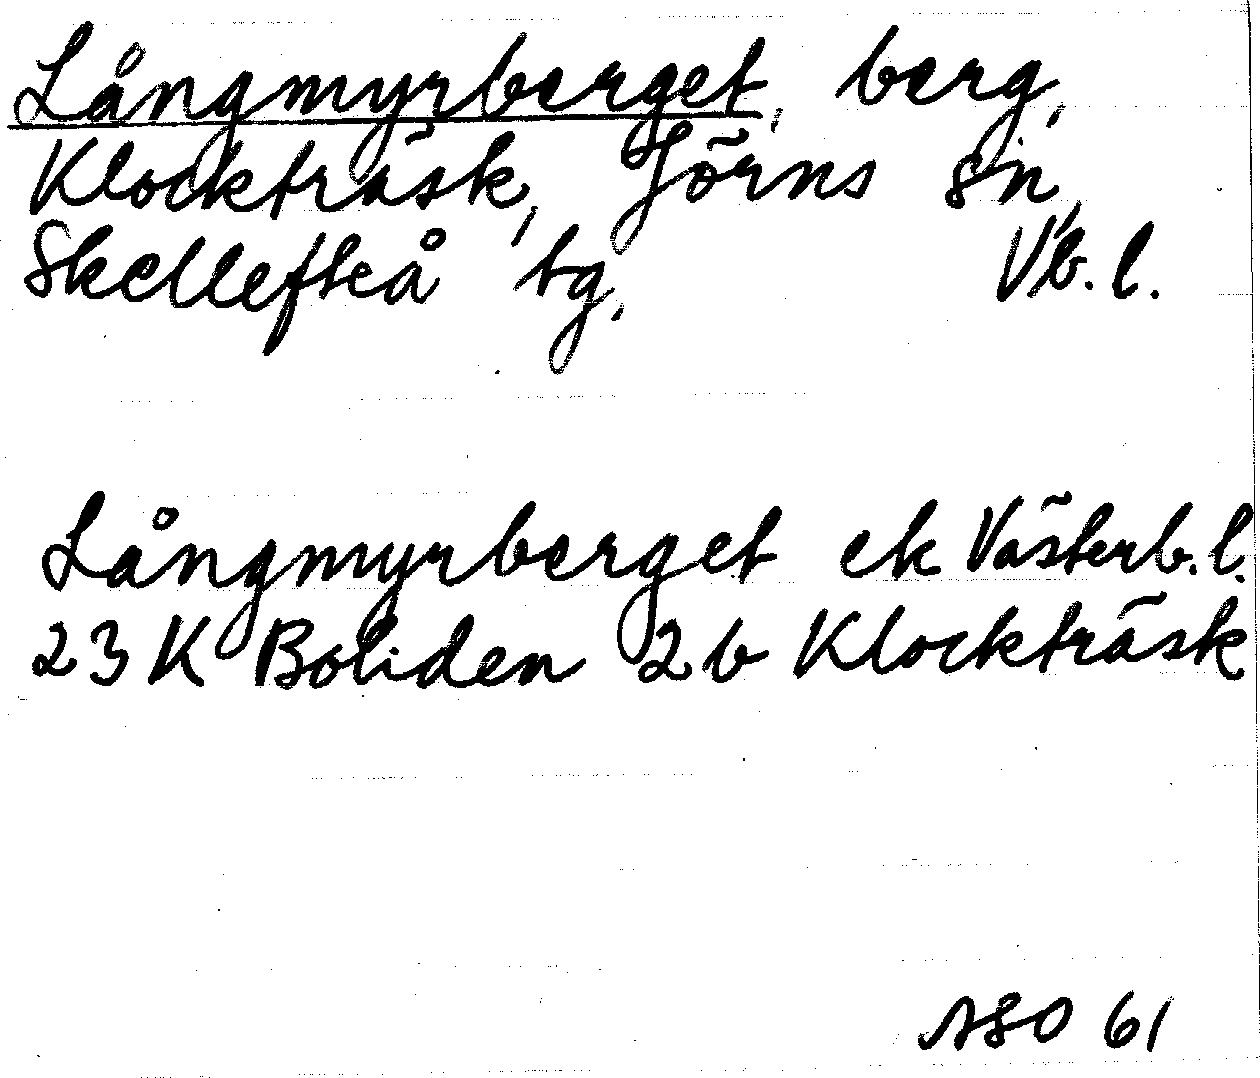 Långmyrberget, berg,
Klockträsk, Jörns sn,
Skellefteå tg, Vb. l.
Långmyrberget ek Västerb. l.
23 K Boliden 2b Klockträsk
ASO 61